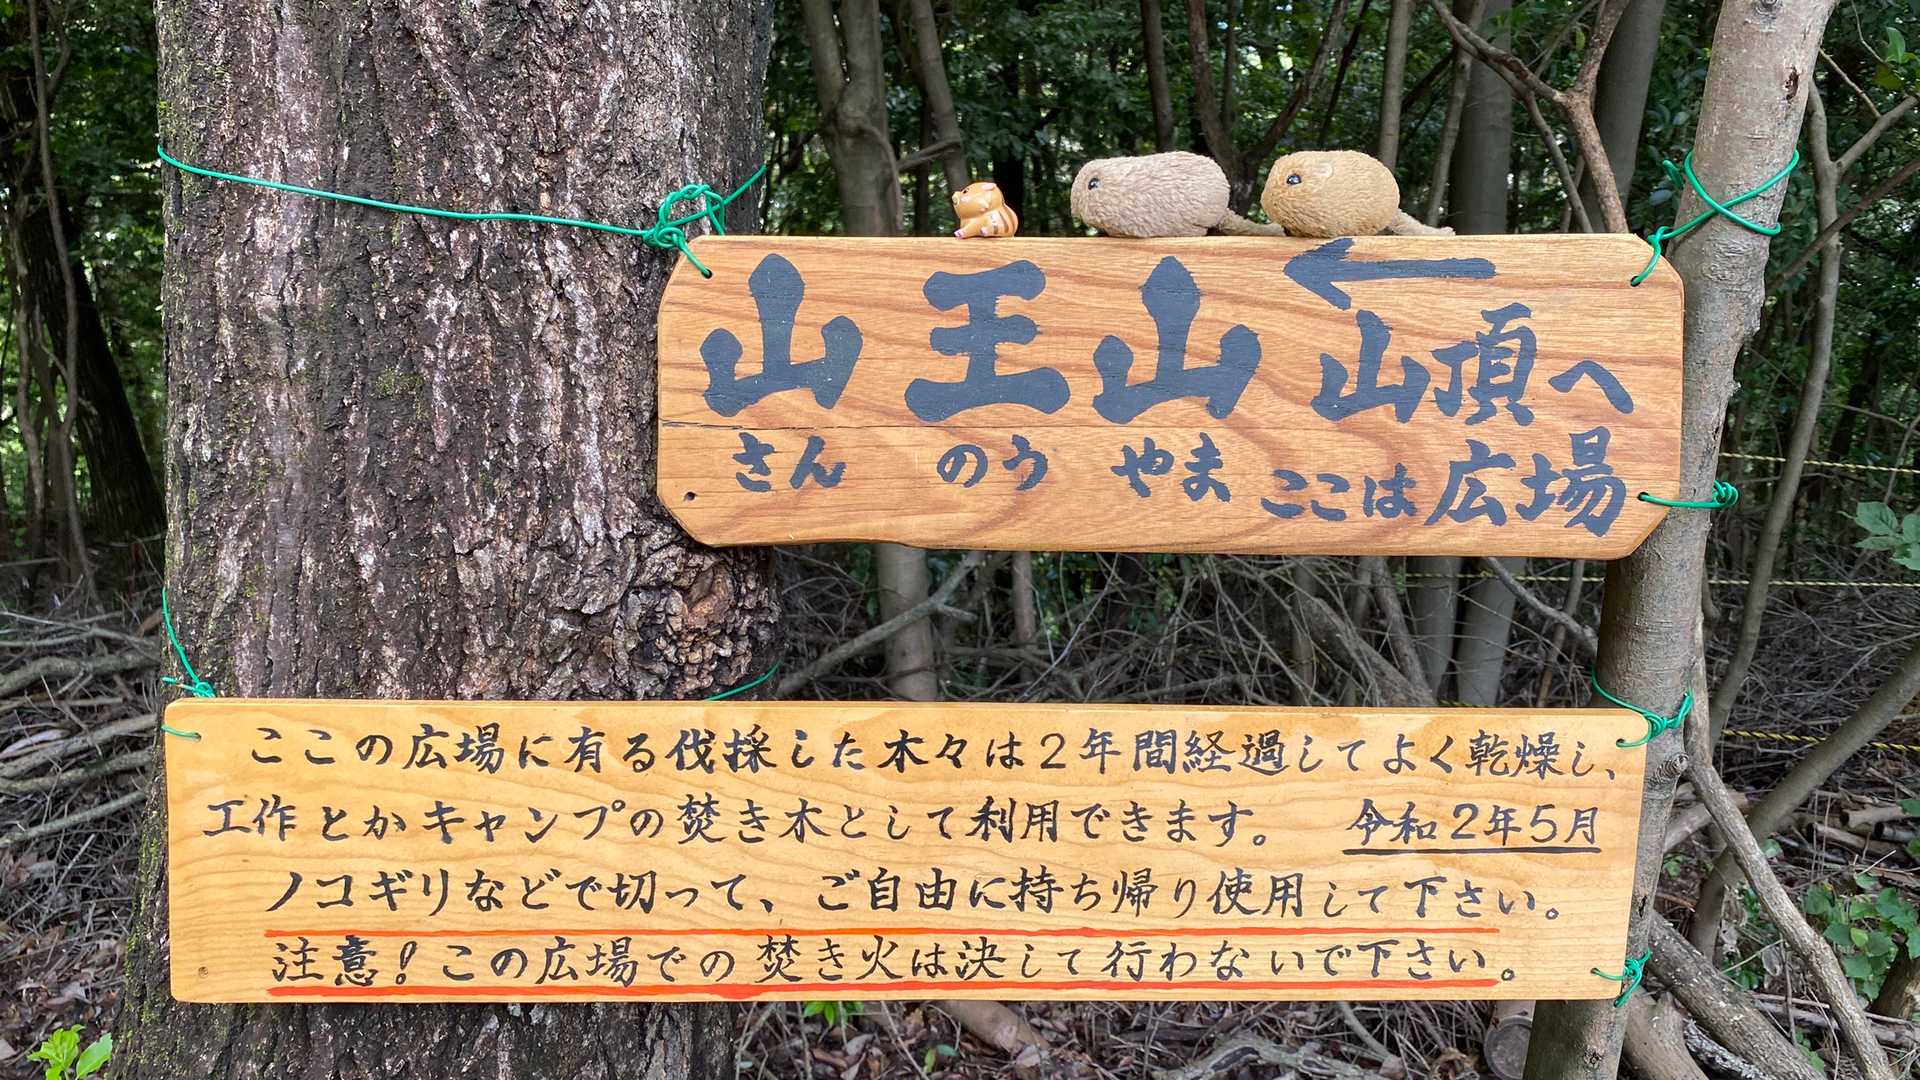 ←
山王山 山頂へ
さん のう やま ここは広場
ここの広場に有る伐採した木々は2年間経過してよく乾燥し、
工作とかキャンプの焚き木として利用できます。 令和2年5月
ノコギリなどで切って、ご自由に持ち帰り使用して下さい。
注意!この広場での焚き火は決して行わないで下さい。